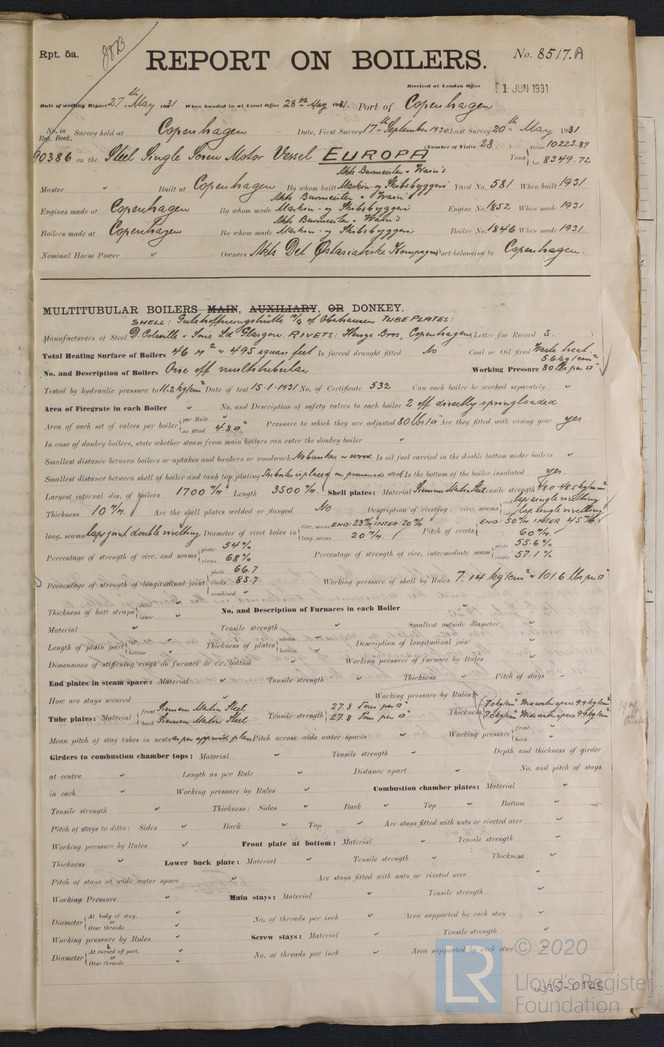 Rpt. 5a.
REPORT ON BOILERS.
No. 8517.A
Received at London Office
1 JUN 1931
Date of writing Report 27th May 1931 When handed in at Local Office 28th May 1931. Port of Copenhagen
No. in Reg. Book. Survey held at Copenhagen Date, First Survey 17th September 1930 Last Survey 20th May 1931
(Number of Visits 28
90386 on the Steel Single Screw Motor Vessel EUROPA Tons Gross 10223.89 Net 6349.72
Master " Built at Copenhagen By whom built Akts Burmeister & Wain's Maskin- og Skibsbyggeri Yard No. 581 When built 1931
Engines made at Copenhagen By whom made Akts Burmeister & Wain's Maskin- og Skibsbyggeri Engine No. 1852 When made 1931
Boilers made at Copenhagen By whom made Akts Burmeister & Wain's Maskin- og Skibsbyggeri Boiler No. 1846 When made 1931.
Nominal Horse Power " Owners Akts Det Østasiatiske Kompagni Port belonging to Copenhagen.
MULTITUBULAR BOILERS MAIN, AUXILIARY, OR DONKEY.
SHELL: Gutehoffnungshütte A/G of Oberhausen TUBE PLATES:
Manufacturers of Steel D. Colville & Sons Ld Glasgow. RIVETS: Henze Bros, Copenhagen (Letter for Record S. )
Total Heating Surface of Boilers 46 m² = 495 square feet Is forced draught fitted No Coal or Oil fired Waste heat.
No. and Description of Boilers One off multitubular Working Pressure 5.6 kg/cm² 80 lbs per □"
Tested by hydraulic pressure to 11.2 kg/cm² Date of test 15-1-1931 No. of Certificate 532 Can each boiler be worked separately
Area of Firegrate in each Boiler No. and Description of safety valves to each boiler 2 off directly springloaded
Area of each set of valves per boiler { per Rule as fitted 4.80" Pressure to which they are adjusted 80 lbs/□" Are they fitted with easing gear yes
In case of donkey boilers, state whether steam from main boilers can enter the donkey boiler
Smallest distance between boilers or uptakes and bunkers or woodwork No bunkers or wood Is oil fuel carried in the double bottom under boilers
Smallest distance between shell of boiler and tank top plating The boiler is placed on promenade deck Is the bottom of the boiler insulated yes
Largest internal dia. of boilers 1700 m/m. Length 3500 m/m. Shell plates: Material Siemens Martin Steel Tensile strength 48.0-48.5 kg/mm²
Thickness 10 m/m. Are the shell plates welded or flanged No Description of riveting: circ. seams { lap single rivetting lap single rivetting
long. seams lap joint double rivetting Diameter of rivet holes in { circ. seams END: 23 m/m INTER: 20 m/m long. seams 20 m/m Pitch of rivets { END: 50 m/m INTER 45.76 60 m/m
Percentage of strength of circ. end seams { plate 54% rivets 68% Percentage of strength of circ. intermediate seam { plate 55.6% rivets 57.1%
Percentage of strength of longitudinal joint { plate 66.7 rivets 85.7 combined Working pressure of shell by Rules 7.14 kg/cm² = 101.6 lbs per □"
Thickness of butt straps { outer inner No. and Description of Furnaces in each Boiler
Material Tensile strength Smallest outside diameter
Length of plain part { top bottom Thickness of plates { crown bottom Description of longitudinal joint
Dimensions of stiffening rings on furnace or c.c. bottom Working pressure of furnace by Rules
End plates in steam space: Material Tensile strength Thickness Pitch of stays
How are stays secured Working pressure by Rules
Tube plates: Material { front Siemens Martin Steel back Siemens Martin Steel Tensile strength { 27.8 Tons per □" 27.8 Tons per □" Thickness
Mean pitch of stay tubes in nests as per approved plan Pitch across wide water spaces Working pressure { front back
Girders to combustion chamber tops: Material Tensile strength Depth and thickness of girder
at centre Length as per Rule Distance apart No. and pitch of stays
in each Working pressure by Rules Combustion chamber plates: Material
Tensile strength Thickness: Sides Back Top Bottom
Pitch of stays to ditto: Sides Back Top Are stays fitted with nuts or riveted over
Working pressure by Rules Front plate at bottom: Material Tensile strength
Thickness Lower back plate: Material Tensile strength Thickness
Pitch of stays at wide water space Are stays fitted with nuts or riveted over
Working Pressure Main stays: Material Tensile strength
Diameter { At body of stay, or Over threads No. of threads per inch Area supported by each stay
Working pressure by Rules Screw stays: Material Tensile strength
Diameter { At turned off part, or Over threads No. of threads per inch Area supported by each stay
© 2020
LR
Lloyd's Register
Foundation